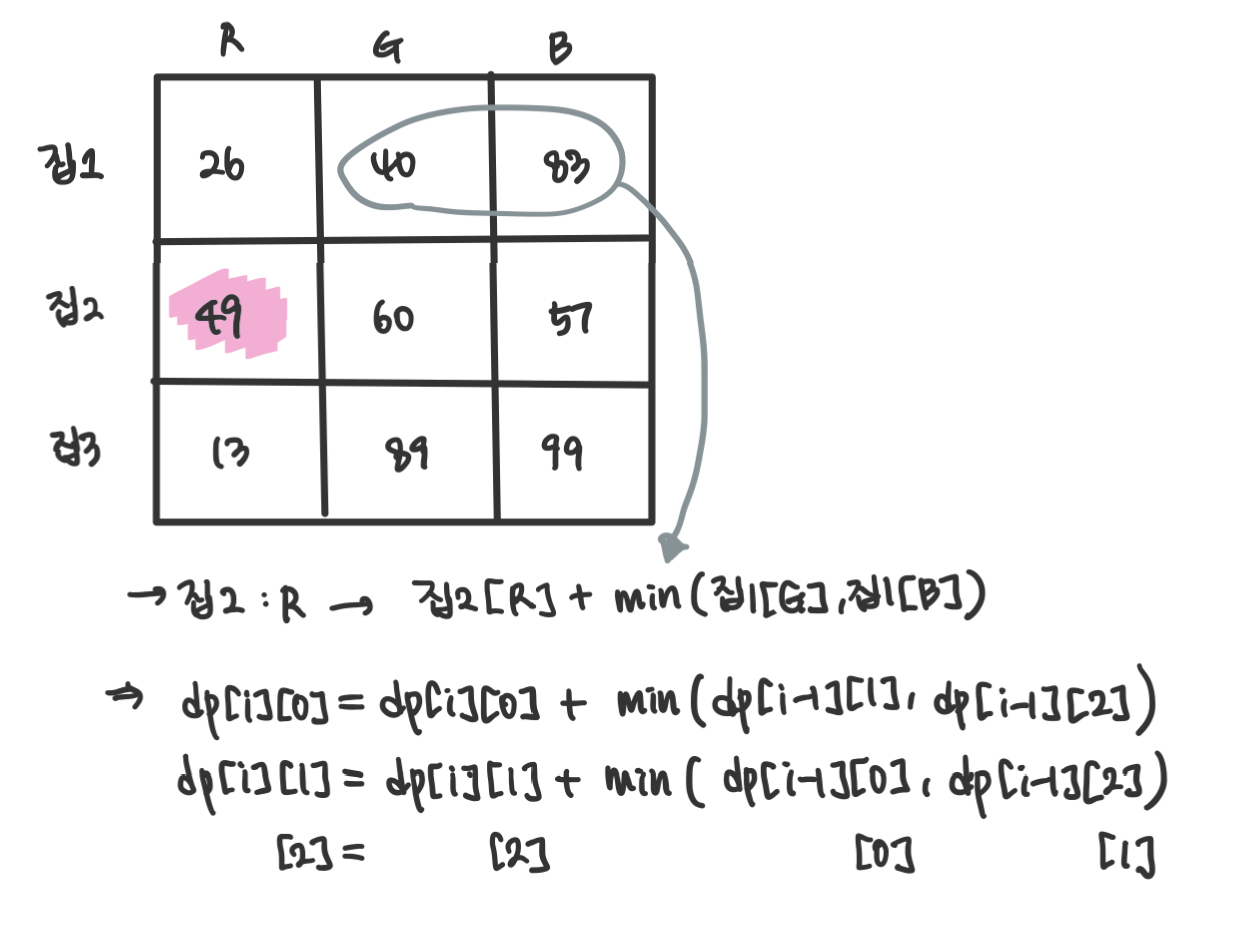 R G B
집1 26 40 83
집2 49 60 57
집3 13 89 99
→ 집2 : R → 집2[R] + min(집1[G], 집1[B])
⇒ dp[i][0] = dp[i][0] + min(dp[i-1][1], dp[i-1][2])
dp[i][1] = dp[i][1] + min( dp[i-1][0], dp[i-1][2])
[2] = [2] [0] [1]